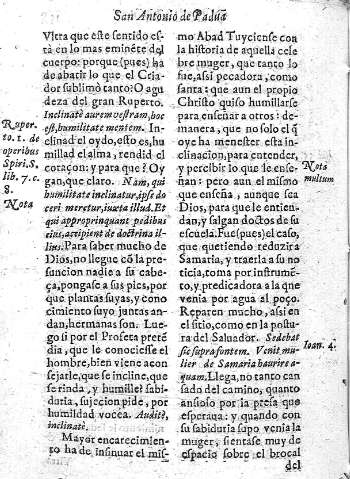 San Antonio de Padua
Vltra que este sentido es-
tà en lo mas eminẽte del
cuerpo: porque (pues) ha
de abatir lo que el Cria-
dor sublimò tanto: O agu
deza del gran Ruperto.
Inclinate aurem vestram, hoc
est, humilitate mentem. In-
clinad el oydo, esto es, hu
millad el alma, rendid el
coraçon: y para que? Oy
gan, que claro. Nam, qui
humilitate inclinatur, ipse do
ceri meretur, iuxta illud. Et
qui appropinquant pedibus
eius, accipient de doctrina il-
lius. Para saber mucho de
Dios, no llegue cõ la pre-
suncion nadie a su cabe-
ça, pongase a sus pies, por
que plantas suyas, y cono
cimiento suyo juntas an-
dan, hermanas son. Lue-
go si por el Profeta pretẽ
dia, que le conociesse el
hombre, bien viene acon
sejarle, que se incline, que
se rinda, y humille: sabi-
duria, sujecion pide, por
humildad vocea. Audite,
inclinate.
Mayor encarecimien-
to ha de insinuar el mis-
Ruper-
to. t. de
operibus
Spiri. S.
lib. 7. c.
8.
Nota
mo Abad Tuyciense con
la historia de aquella cele
bre muger, que tanto lo
fue, assi pecadora, como
santa: que aun el propio
Christo quiso humillarse
para enseñar a otros: de-
manera, que no solo el q̃
oye ha menester esta in-
clinacion, para entender,
y percibir lo que le ense-
ñan: pero aun el mismo
que enseña, aunque sea
Dios, para que le entien-
dan, y salgan doctos de su
escuela. Fue (pues) el caso,
que queriendo reduzir a
Samaria, y traerla a su no
ticia, tomà por instrumẽ-
to, y predicadora a la que
venia por agua al poço.
Reparen mucho, assi en
el sitio, como en la postu-
ra del Saluador. Sedebat
sic supra fontem. Venit mu-
lier de Samaria haurire a-
quam. Llega, no tanto can
sado del camino, quanto
ansioso por la presa que
esperaua: y quando con
su sabiduria supo venia la
muger, sientase muy de
espacio sobre el brocal
del
Nota
multum
Ioan. 4.